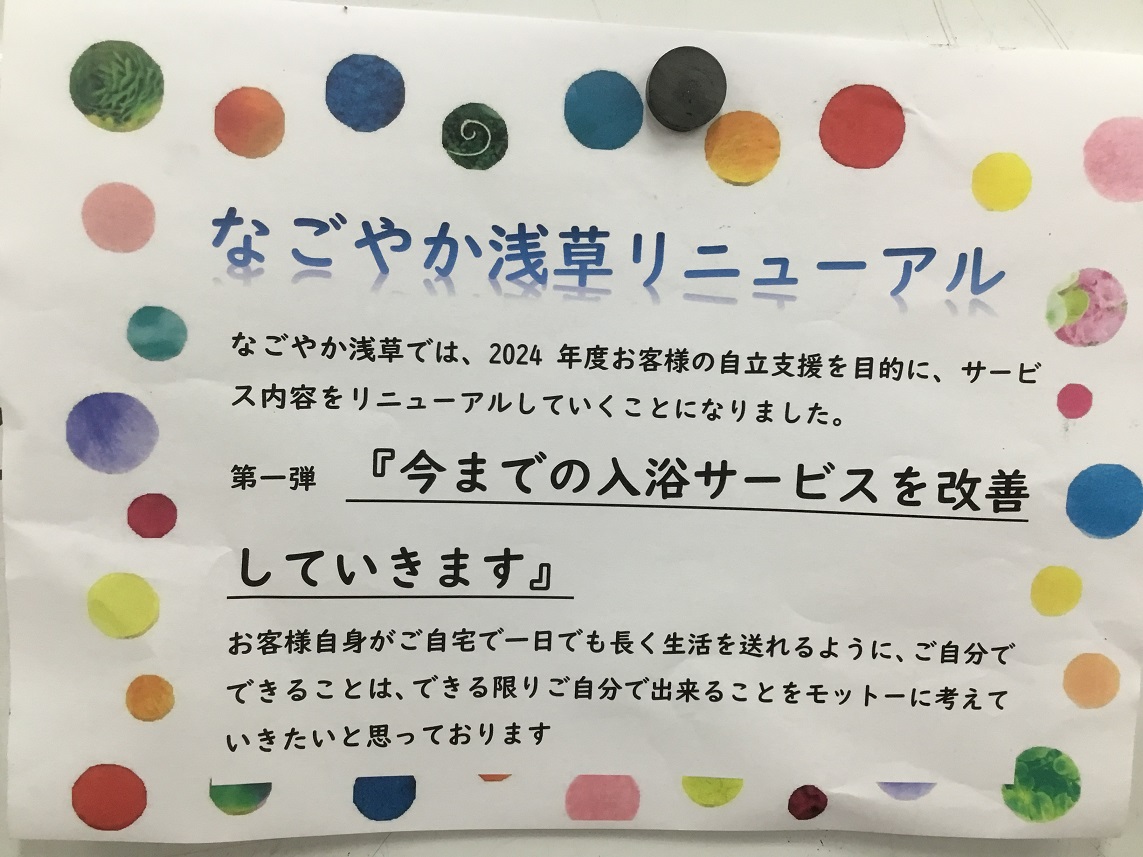 なごやか浅草リニューアル
なごやか浅草では、2024 年度お客様の自立支援を目的に、サービ
ス内容をリニューアルしていくことになりました。
第一弾 『今までの入浴サービスを改善
していきます』
お客様自身がご自宅で一日でも長く生活を送れるように、ご自分で
できることは、できる限りご自分で出来ることをモットーに考えて
いきたいと思っております